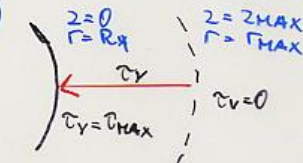 z=0
r=R*
z=zMAX
r=rMAX
τν
τν=0
τν=τMAX